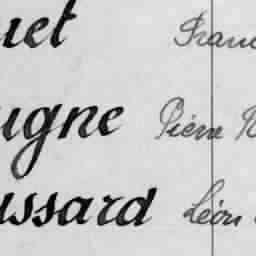 uet Franc
igne Pierre R
ussard Léon